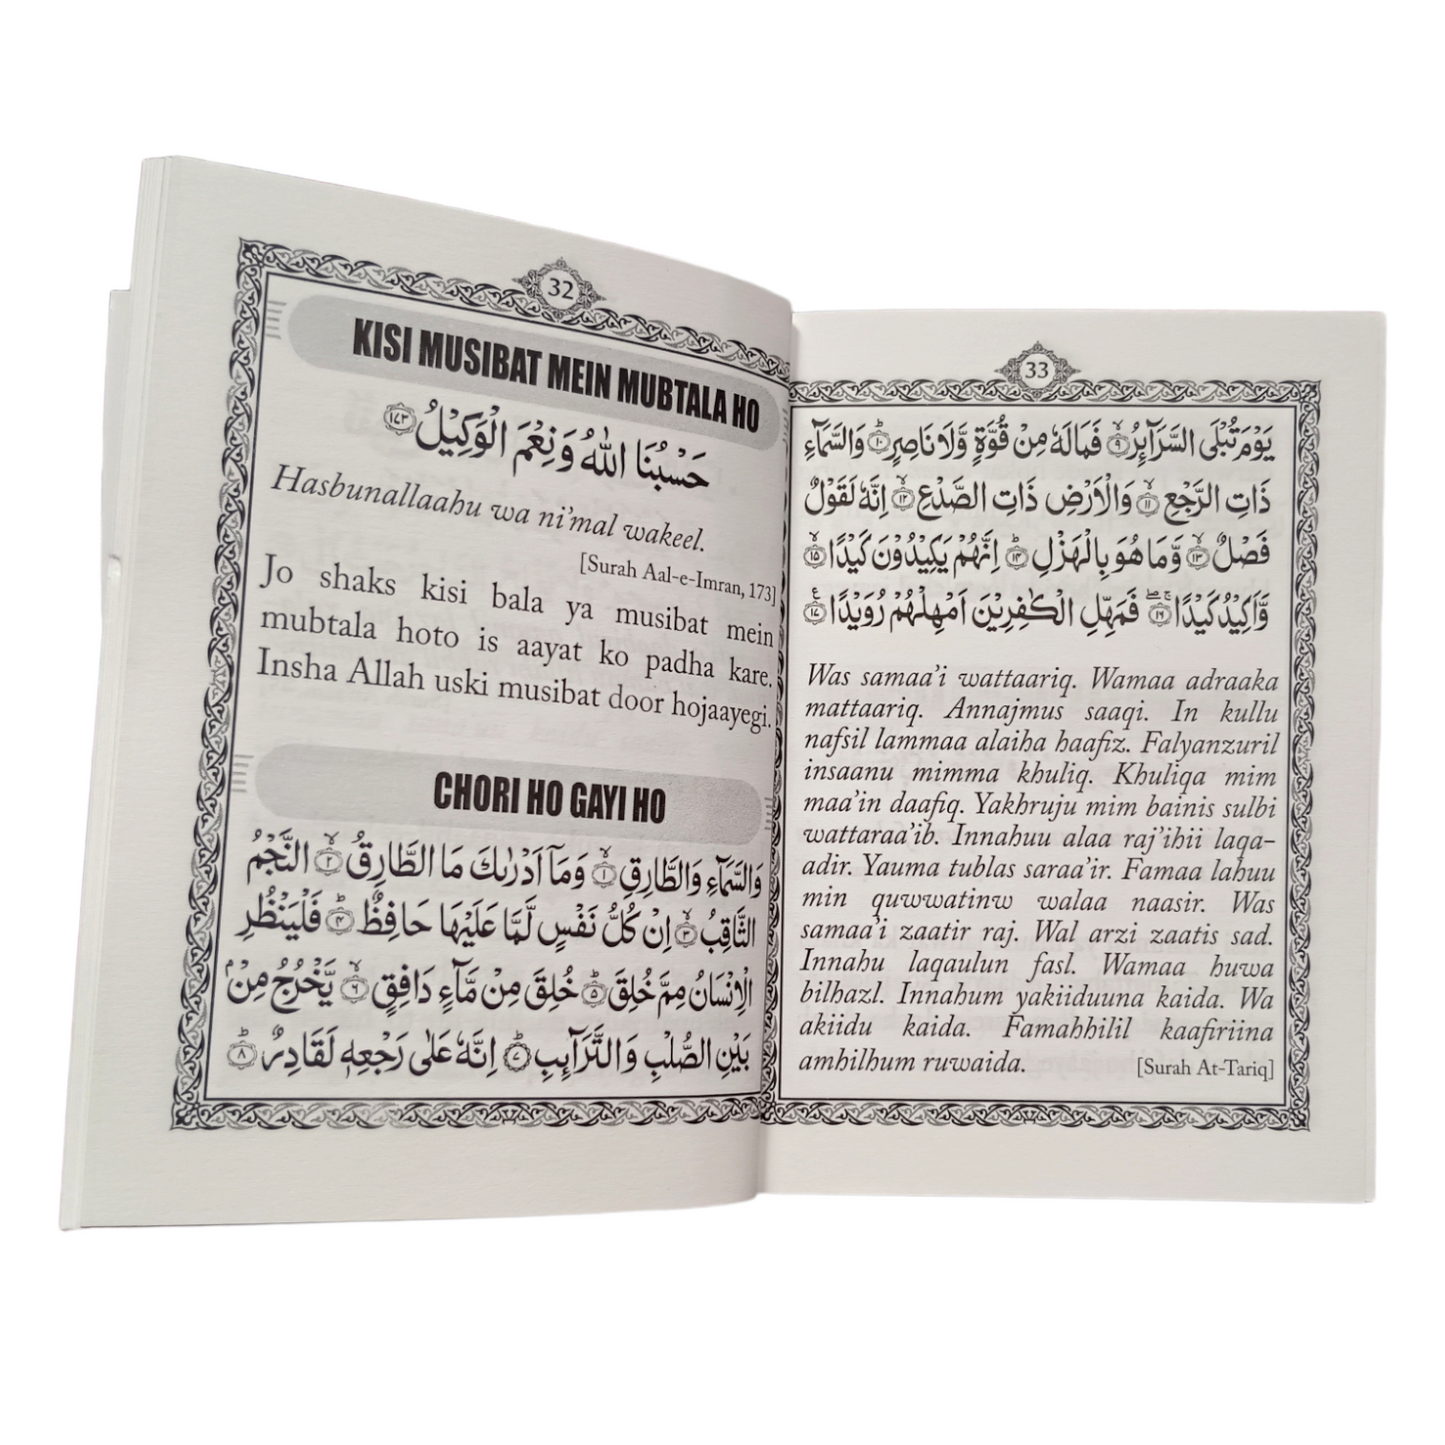 32
KISI MUSIBAT MEIN MUBTALA HO
حَسْبُنَا اللّٰهُ وَنِعْمَ الْوَكِيْلُ ۝۱۷۳
Hasbunallaahu wa ni'mal wakeel.
[Surah Aal-e-Imran, 173]
Jo shaks kisi bala ya musibat mein
mubtala hoto is aayat ko padha kare.
Insha Allah uski musibat door hojaayegi.
CHORI HO GAYI HO
وَالسَّمَآءِ وَالطَّارِقِ ۝۱ۙ وَمَاۤ اَدْرٰىكَ مَا الطَّارِقُ ۝۲ۙ النَّجْمُ
الثَّاقِبُ ۝۳ۙ اِنْ كُلُّ نَفْسٍ لَّمَّا عَلَيْهَا حَافِظٌ ۝۴ؕ فَلْيَنْظُرِ
الْاِنْسَانُ مِمَّ خُلِقَ ۝۵ؕ خُلِقَ مِنْ مَّآءٍ دَافِقٍ ۝۶ۙ يَّخْرُجُ مِنْۢ
بَيْنِ الصُّلْبِ وَالتَّرَآئِبِ ۝۷ؕ اِنَّهٗ عَلٰى رَجْعِهٖ لَقَادِرٌ ۝۸ؕ
33
يَوْمَ تُبْلَى السَّرَآئِرُ ۝۹ۙ فَمَا لَهٗ مِنْ قُوَّةٍ وَّلَا نَاصِرٍ ۝۱۰ؕ وَالسَّمَآءِ
ذَاتِ الرَّجْعِ ۝۱۱ۙ وَالْاَرْضِ ذَاتِ الصَّدْعِ ۝۱۲ۙ اِنَّهٗ لَقَوْلٌ
فَصْلٌ ۝۱۳ۙ وَّمَا هُوَ بِالْهَزْلِ ۝۱۴ؕ اِنَّهُمْ يَكِيْدُوْنَ كَيْدًا ۝۱۵ۙ
وَّاَكِيْدُ كَيْدًا ۝۱۶ۚۖ فَمَهِّلِ الْكٰفِرِيْنَ اَمْهِلْهُمْ رُوَيْدًا ۝۱۷ع
Was samaa'i wattaariq. Wamaa adraaka
mattaariq. Annajmus saaqi. In kullu
nafsil lammaa alaiha haafiz. Falyanzuril
insaanu mimma khuliq. Khuliqa mim
maa'in daafiq. Yakhruju mim bainis sulbi
wattaraa'ib. Innahuu alaa raj'ihii laqa-
adir. Yauma tublas saraa'ir. Famaa lahuu
min quwwatinw walaa naasir. Was
samaa'i zaatir raj. Wal arzi zaatis sad.
Innahu laqaulun fasl. Wamaa huwa
bilhazl. Innahum yakiiduuna kaida. Wa
akiidu kaida. Famahhilil kaafiriina
amhilhum ruwaida.
[Surah At-Tariq]